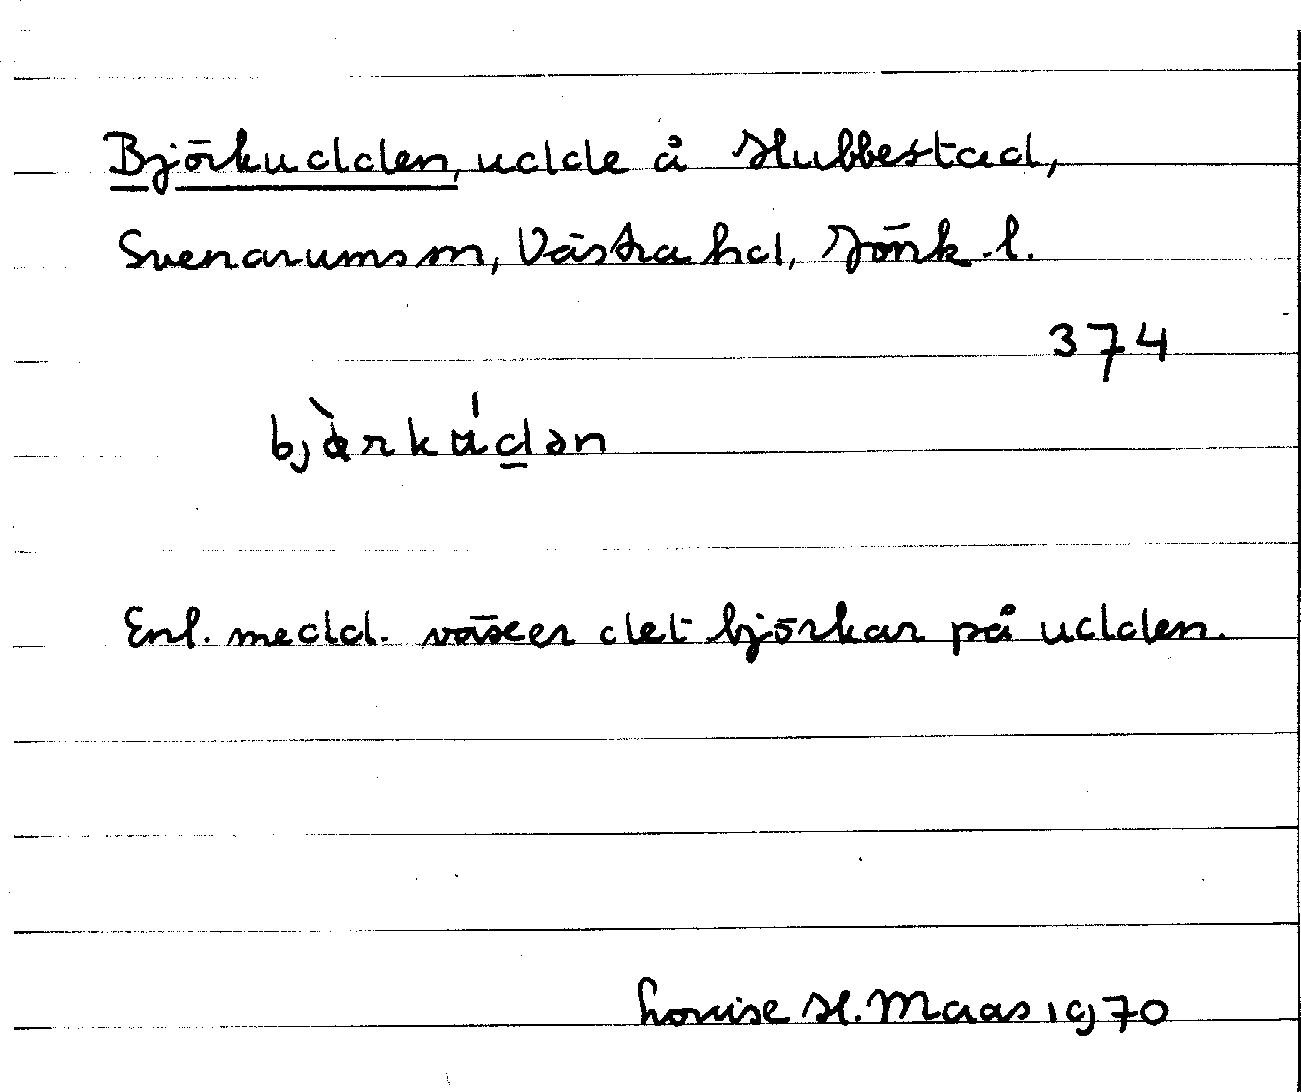 Björkudden, udde å Hubbestad,
Svenarums sn, Västra hd, Jönk. l.
374
Enl. medd. växer det björkar på udden.
Louise H. Maas 1970